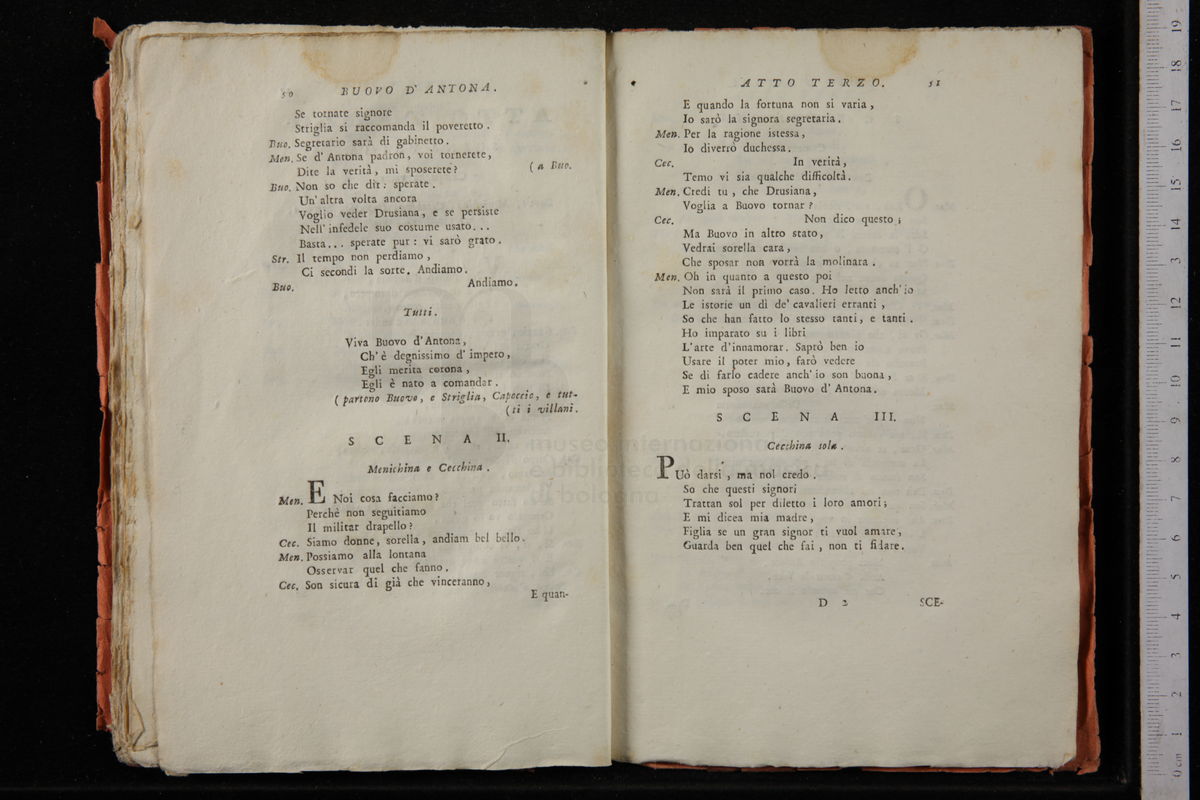 50 BUOVO D' ANTONA.
Se tornate signore
Striglia si raccomanda il poveretto.
Buo. Segretario sarà di gabinetto.
Men. Se d' Antona padron, voi tornerete,
Dite la verità, mi sposerete? (a Buo.
Buo. Non so che dir: sperate.
Un' altra volta ancora
Voglio veder Drusiana, e se persiste
Nell' infedele suo costume usato...
Basta... sperate pur: vi sarò grato.
Str. Il tempo non perdiamo,
Ci secondi la sorte. Andiamo.
Buo. Andiamo.
Tutti.
Viva Buovo d' Antona,
Ch' è degnissimo d' impero,
Egli merita corona,
Egli è nato a comandar.
(partono Buovo, e Striglia, Capoccio, e tut-
(ti i villani.
SCENA II.
Menichina e Cecchina.
Men. E Noi cosa facciamo?
Perchè non seguitiamo
Il militar drapello?
Cec. Siamo donne, sorella, andiam bel bello.
Men. Possiamo alla lontana
Osservar quel che fanno.
Cec. Son sicura di già che vinceranno,
E quan-
ATTO TERZO. 51
E quando la fortuna non si varia,
Io sarò la signora segretaria.
Men. Per la ragione istessa,
Io diverrò duchessa.
Cec. In verità,
Temo vi sia qualche difficoltà.
Men. Credi tu, che Drusiana,
Voglia a Buovo tornar?
Cec. Non dico questo;
Ma Buovo in altro stato,
Vedrai sorella cara,
Che sposar non vorrà la molinara.
Men. Oh in quanto a questo poi
Non sarà il primo caso. Ho letto anch' io
Le istorie un dì de' cavalieri erranti,
So che han fatto lo stesso tanti, e tanti.
Ho imparato su i libri
L' arte d' innamorar. Saprò ben io
Usare il poter mio, farò vedere
Se di farlo cadere anch' io son buona,
E mio sposo sarà Buovo d' Antona.
SCENA III.
Cecchina sola.
PUò darsi, ma nol credo.
So che questi signori
Trattan sol per diletto i loro amori;
E mi dicea mia madre,
Figlia se un gran signor ti vuol amare,
Guarda ben quel che fai, non ti fidare.
D 2 SCE-
museo internazionale
e biblioteca
di bologna
0 cm 1 2 3 4 5 6 7 8 9 10 11 12 13 14 15 16 17 18 19